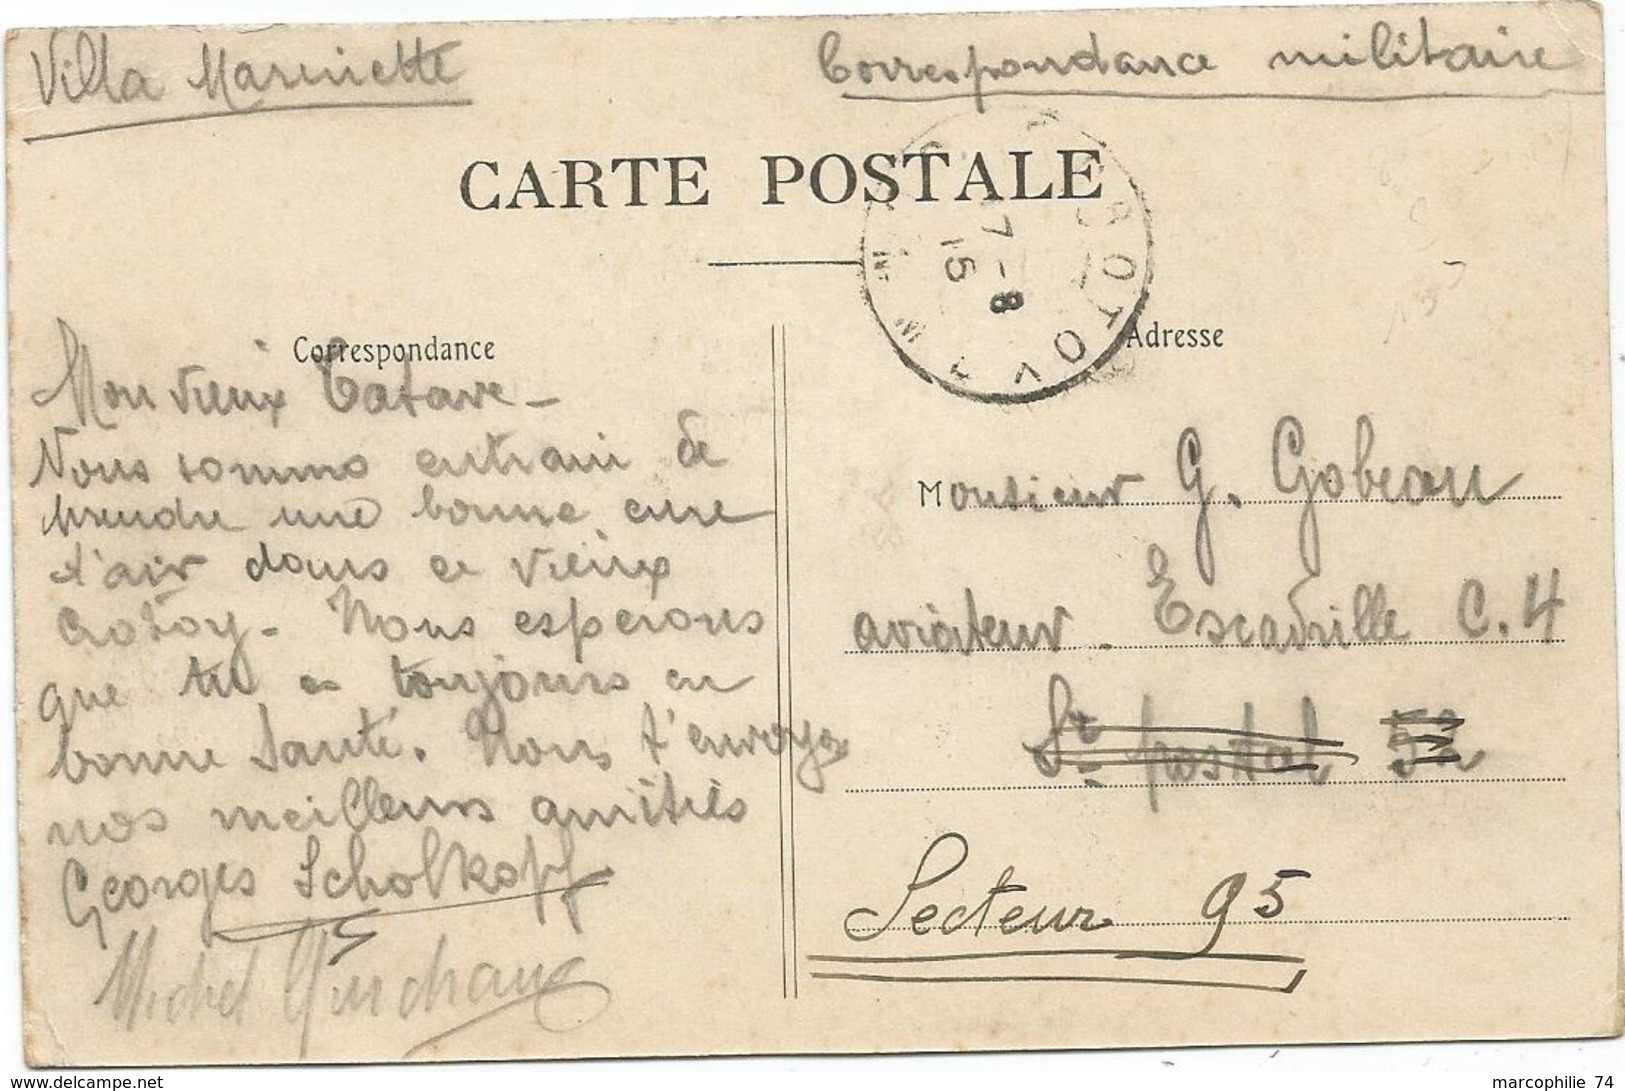 Villa Marinette
Correspondance militaire
CARTE POSTALE
7-8
15
Correspondance
Adresse
Mon vieux Tatave -
Nous sommes entrain de
prendre une bonne cure
d'air dans ce vieux
Crotoy. Nous esperons
que tu es toujours en
bonne santé. Nous t'envoyons
nos meilleurs amitiés
Georges Scholkopff
Michel
Monsieur G. Gobeau
aviateur. Escadrille C. 4
Sr postal 52
Secteur 95
marcophilie 74
www.delcampe.net